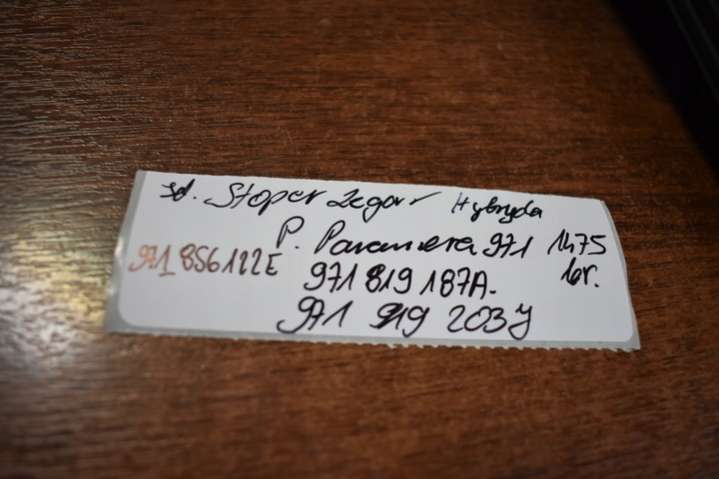 zd. Stoper zegar Hybryda
P. Panamera 971 1475
971856122E 971 819 187A. br.
971 919 203J